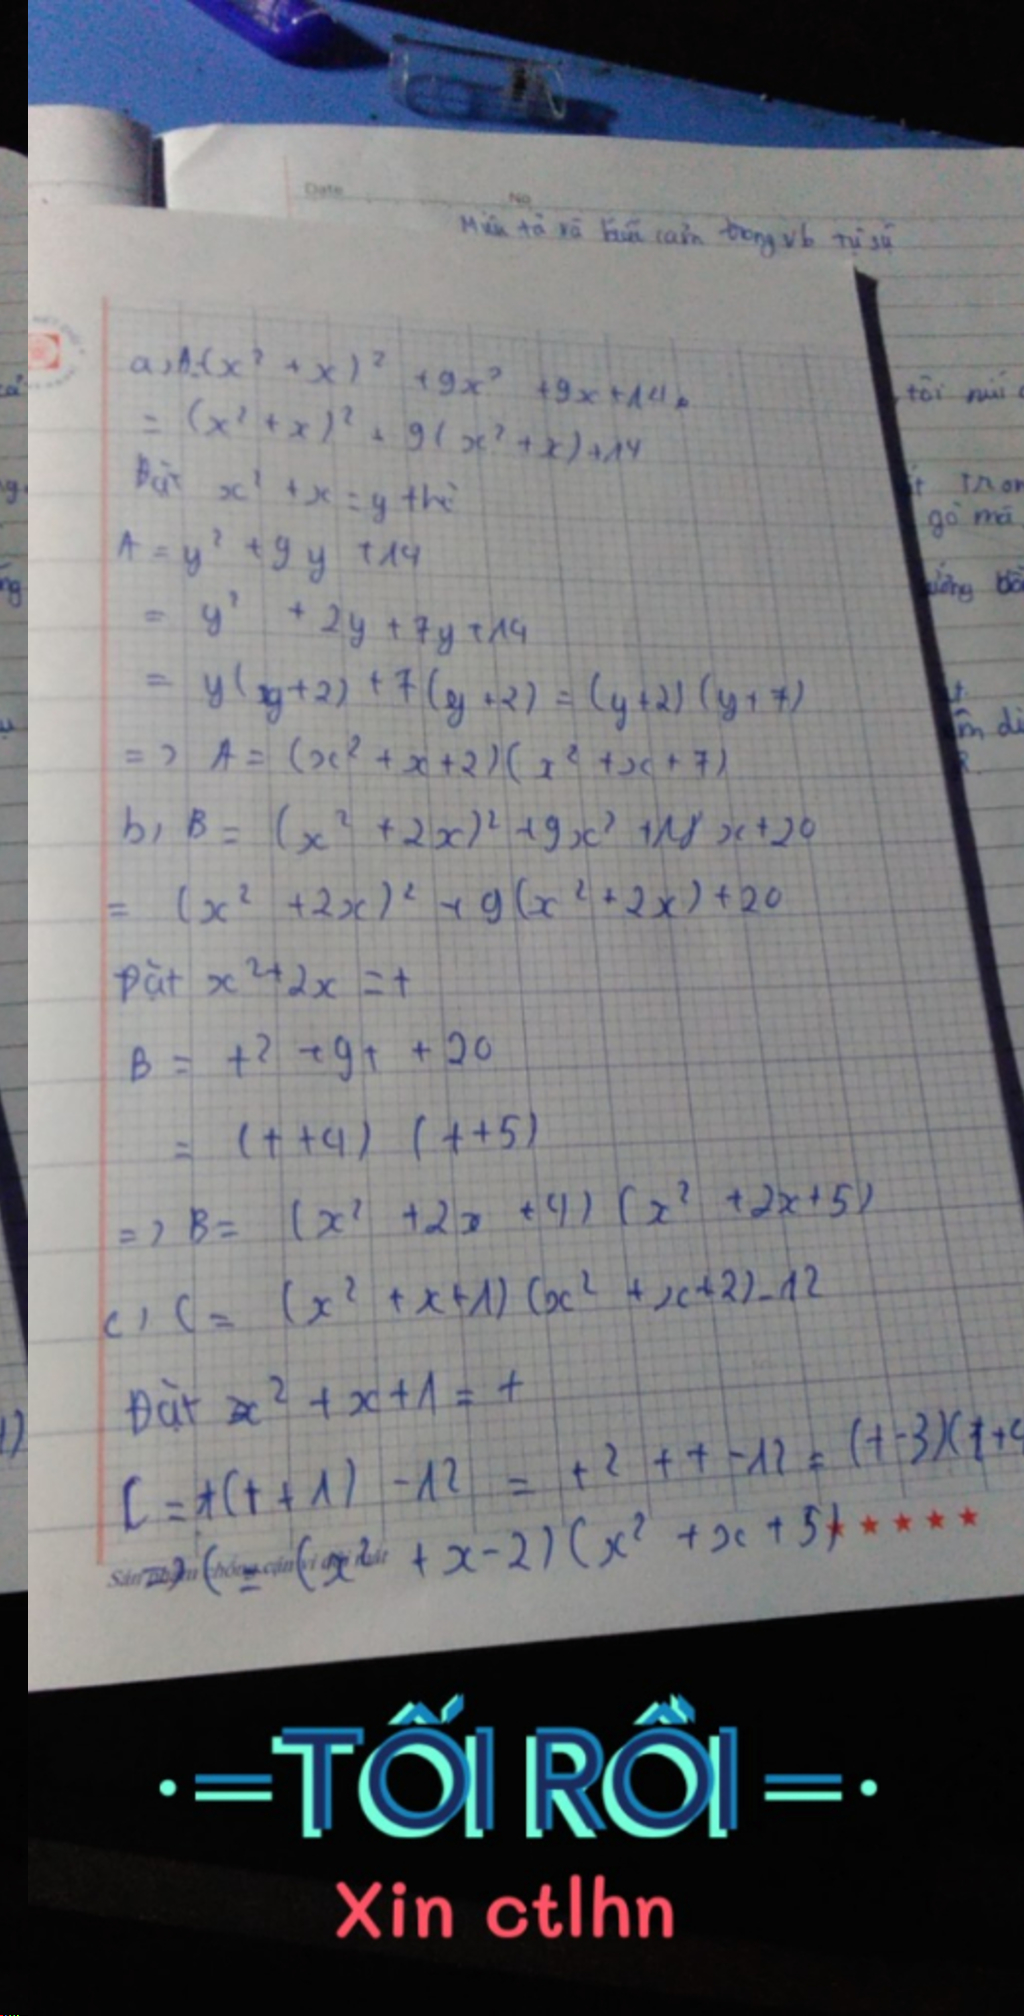 Date No
Miêu tả và biểu cảm trong vb tự sự
a, A=(x² + x)² + 9x² + 9x + 14
= (x² + x)² + 9(x² + x) + 14
Đặt x² + x = y thì
A = y² + 9y + 14
= y² + 2y + 7y + 14
= y(y+2) + 7(y+2) = (y+2)(y+7)
=> A = (x² + x + 2)(x² + x + 7)
b, B = (x² + 2x)² + 9x² + 18x + 20
= (x² + 2x)² + 9(x² + 2x) + 20
Đặt x² + 2x = t
B = t² + 9t + 20
= (t + 4) (t + 5)
=> B = (x² + 2x + 4) (x² + 2x + 5)
c, C = (x² + x + 1) (x² + x + 2) - 12
Đặt x² + x + 1 = t
C = t(t + 1) - 12 = t² + t - 12 = (t - 3)(t + 4
=> C = (x² + x - 2) (x² + x + 5)
Sản phẩm chống cận vì đôi mắt
tôi núi
gò mã
TỐI RỒI
Xin ctlhn